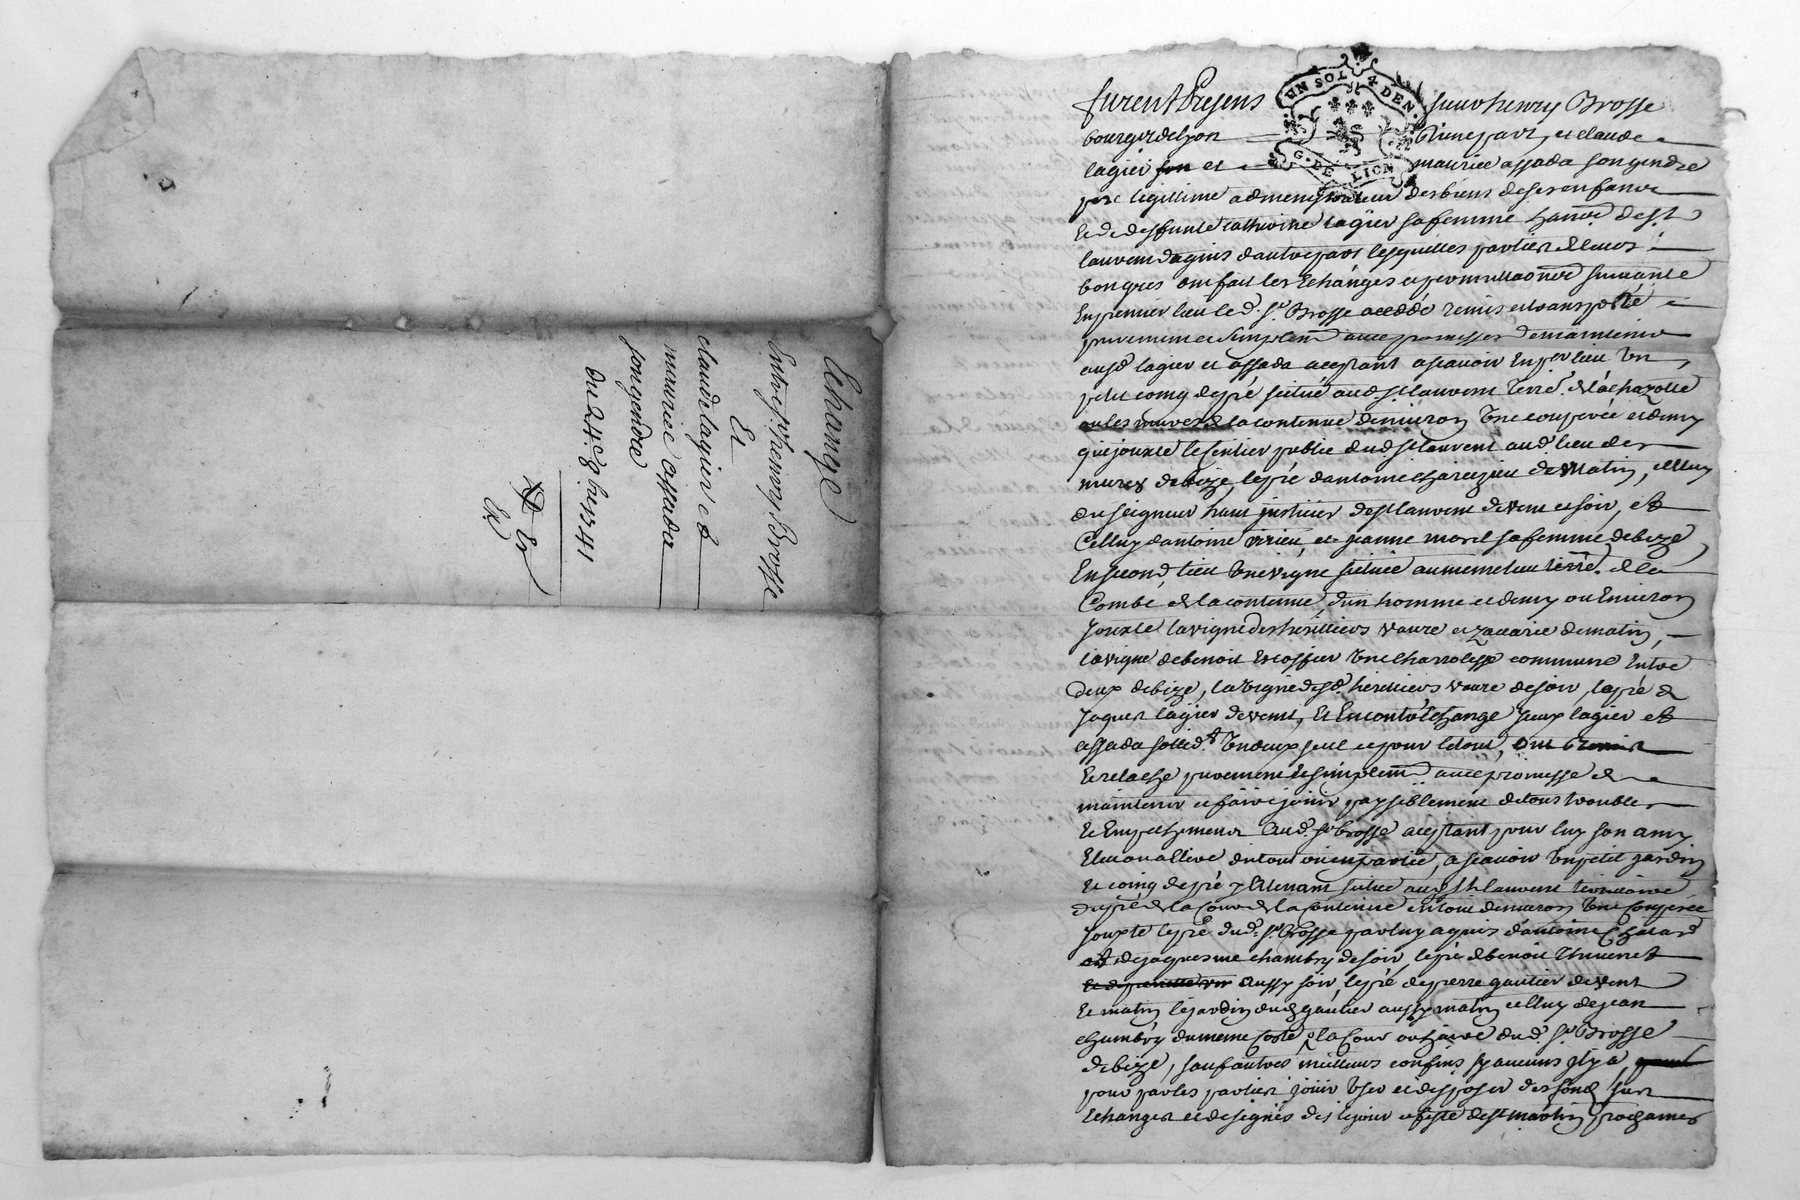 Echange
Entre Sr henry Brosse
Et
claude lagier et
maurice assada
son gendre
du 24e 8bre 1741
UN SOL 4 DEN.
G. DE LION
furent Presens sieur henry Brosse
bourgeois de Lyon d'une part, et claude
lagier et maurice assada son gendre
pere legitime administrateur des biens de ses enfans
et de deffunte catherine lagier sa femme de St
laurent d'agnis d'autre part lesquelles parties de leurs
bon gres ont fait les Echanges et permutations suivante
En premier lieu led. Sr. Brosse a cedé remis et transporté
purement et simplem avec promesse de maintenir
ausd lagier et assada aceptant ascavoir En per lieu un
petit coing de pré scitué aud St laurent
de la contenue d'environ une couperée et demy
que jouxte le sentier public dud St laurent aud lieu des
mures de bize, le pré d'antoine de matin, celluy
du seigneur haut justicier de St laurent de vent et soir, et
Celluy d'antoine virieu et jeanne morel sa femme de bize
En second lieu une vigne scituée au meme lieu de la
Combe de la contenue d'un homme et demy ou Environ
jouxte la vigne des heritiers vaure et zacarie de matin,
la vigne de benoit Escoffier une commune Entre
deux de bize, la vigne desd. heritiers vaure de soir, le pré de
jaques lagier de vent, Et En contre Echange yceux lagier et
assada sollid. un deux seul et pour le tout, ont
Et relache purement Et simplem avec promesse de
maintenir et faire jouir paysiblement de tous troubles
Et Empechemens Aud. Sr brosse aceptant pour luy son amy
Elu ou a Elire en tout ou en partie, ascavoir un petit jardin
Et coing de pré y attenant scitué aud St laurent
du pré de la cour de la contenue en tout d'environ une couperée
jouxte le pré dud. Sr. Brosse par luy aquis d'antoine
de jaquesme chambry de soir, le pré de benoit
aussy soir, le pré de pierre gautier de vent
Et matin le jardin dud gautier aussy matin celluy de jean
chambry du meme costé, la cour dud. Sr Brosse
de bize, sauf autres meilleurs confins sy aucuns il y a
pour par les parties jouir user et disposer des fonds sur
Echangés et designés dès le jour et feste de St martin prochaines